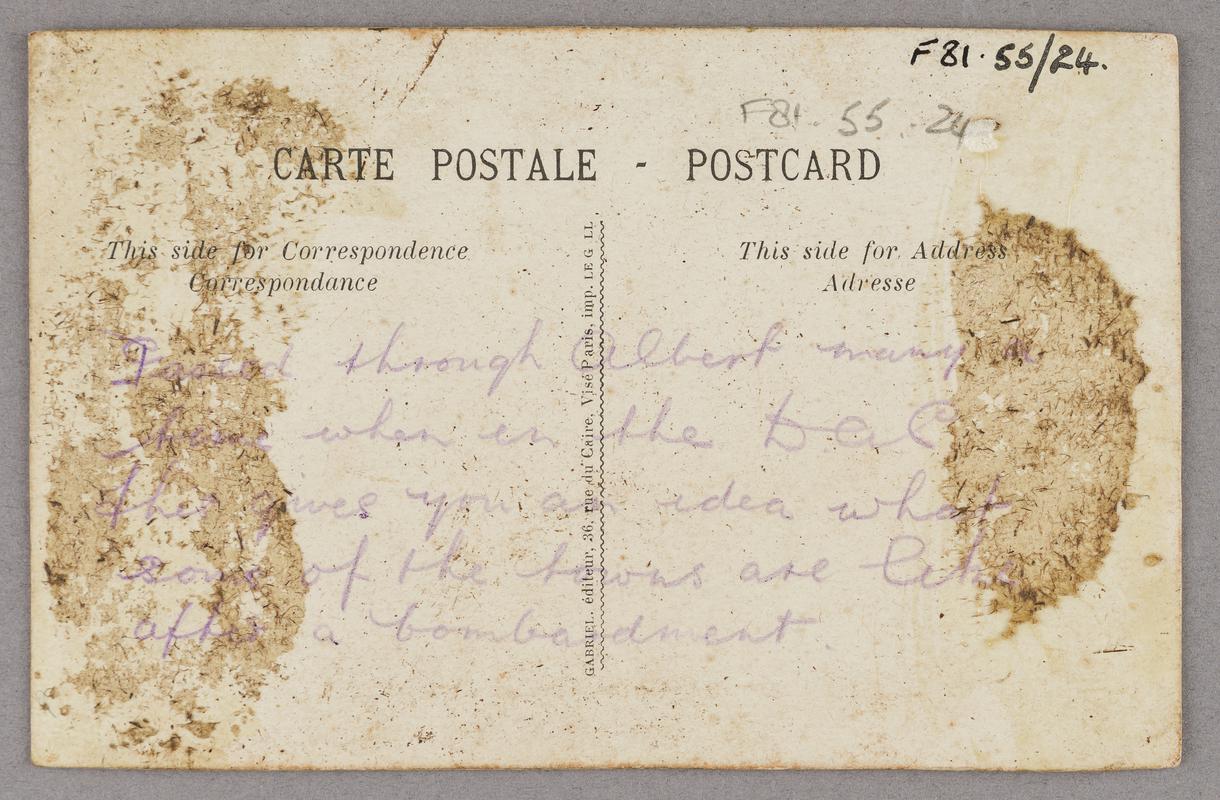 F81.55/24.
F81.55.24
CARTE POSTALE - POSTCARD
This side for Correspondence
Correspondance
This side for Address
Adresse
GABRIEL. éditeur, 36, rue du Caire, Visé Paris, imp. LE G LL
Passed through Albert many a
time when in the D.A.C.
this gives you an idea what
some of the towns are like
after a bombardment.